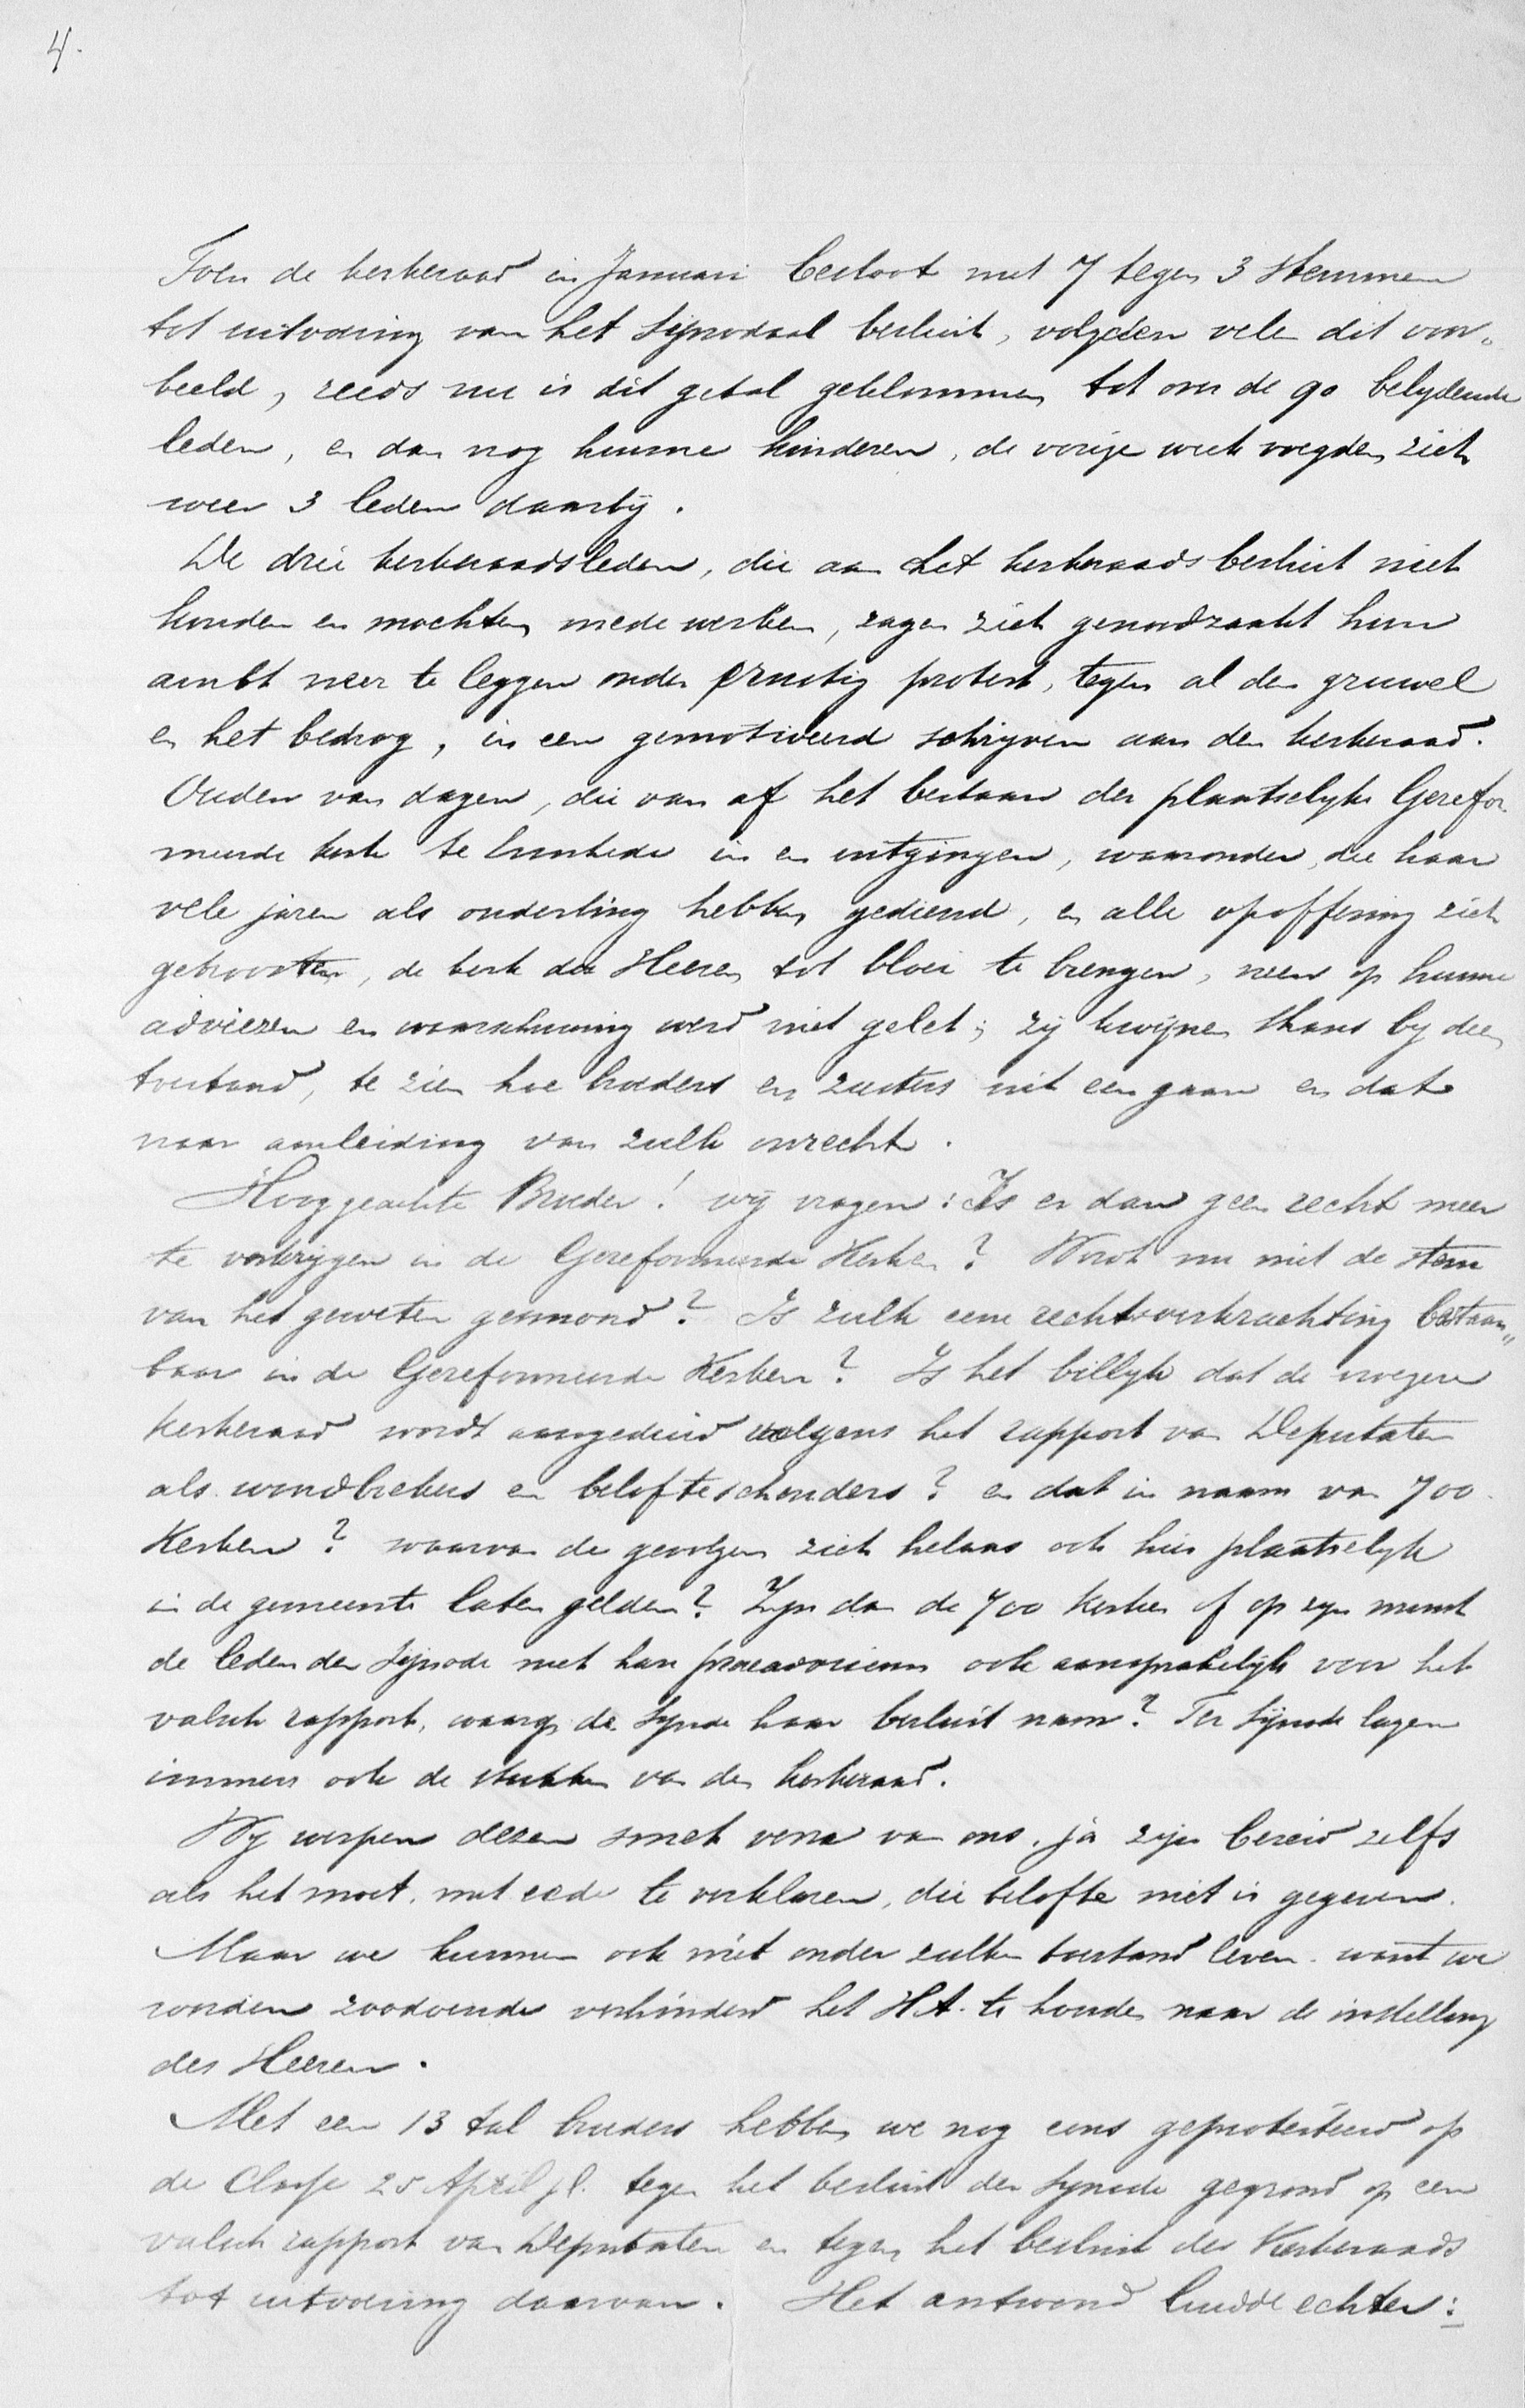 4.
Toen de kerkeraad in Januari besloot met 7 tegen 3 stemmen
tot uitvoering van het Synodaal besluit, volgden velen dit voor„
beeld, reeds nu is dit getal geklommen tot over de 90 belydende
leden, en dan nog hunne kinderen, de vorige week voegden zich
weer 3 leden daarbij.
De drie kerkeraadsleden, die aan het kerkeraadsbesluit niet
konden en mochten medewerken, zagen zich genoodzaakt hun
ambt neer te leggen onder ernstig protest, tegen al den gruwel
en het bedrog, in een gemotiveerd schrijven aan den kerkeraad.
Ouden van dagen, die van af het bestaan der plaatselyke Gerefor„
meerde kerk te in en uitgingen, waaronder, die haar
vele jaren als ouderling hebben gediend, en alle opoffering zich
getroostten, de kerk des Heeren tot bloei te brengen, neen op hunne
adviezen en waarschuwing werd niet gelet; zij kwijnen thans by den
toestand, te zien hoe broeders en zusters uit een gaan en dat
naar aanleiding van zulk onrecht.
Hooggeachte Broeder! wij vragen: Is er dan geen recht meer
te verkrygen in de Gereformeerde Kerken? Wordt nu niet de stem
van het geweten gesmoord? Is zulk eene rechtsverkrachting bestaan„
baar in de Gereformeerde Kerken? Is het billyk dat de vroegere
kerkeraad wordt aangeduid volgens het rapport van Deputaten
als woordbrekers en belofteschenders? en dat in naam van 700
Kerken? waarvan de gevolgen zich helaas ook hier plaatselyk
in de gemeente laten gelden? Zyn dan de 700 Kerken of op zyn minst
de leden der Synode met hare praeadviseurs ook aansprakelijk voor het
valsch rapport, waarop de Synode haar besluit nam? Ter Synode lagen
immers ook de stukken van den kerkeraad.
Wy werpen dezen smet verre van ons, ja zijn bereid zelfs
als het moet, met eede te verklaren, die belofte niet is gegeven.
Maar we kunnen ook niet onder zulken toestand leven, want we
worden zoodoende verhinderd het H.A. te houden naar de instelling
des Heeren.
Met een 13 tal broeders hebben we nog eens geprotesteerd op
de Classe 25 April jl. tegen het besluit der Synode gegrond op een
valsch rapport van Deputaten en tegen het besluit des Kerkeraads
tot uitvoering daarvan. Het antwoord luidde echter: